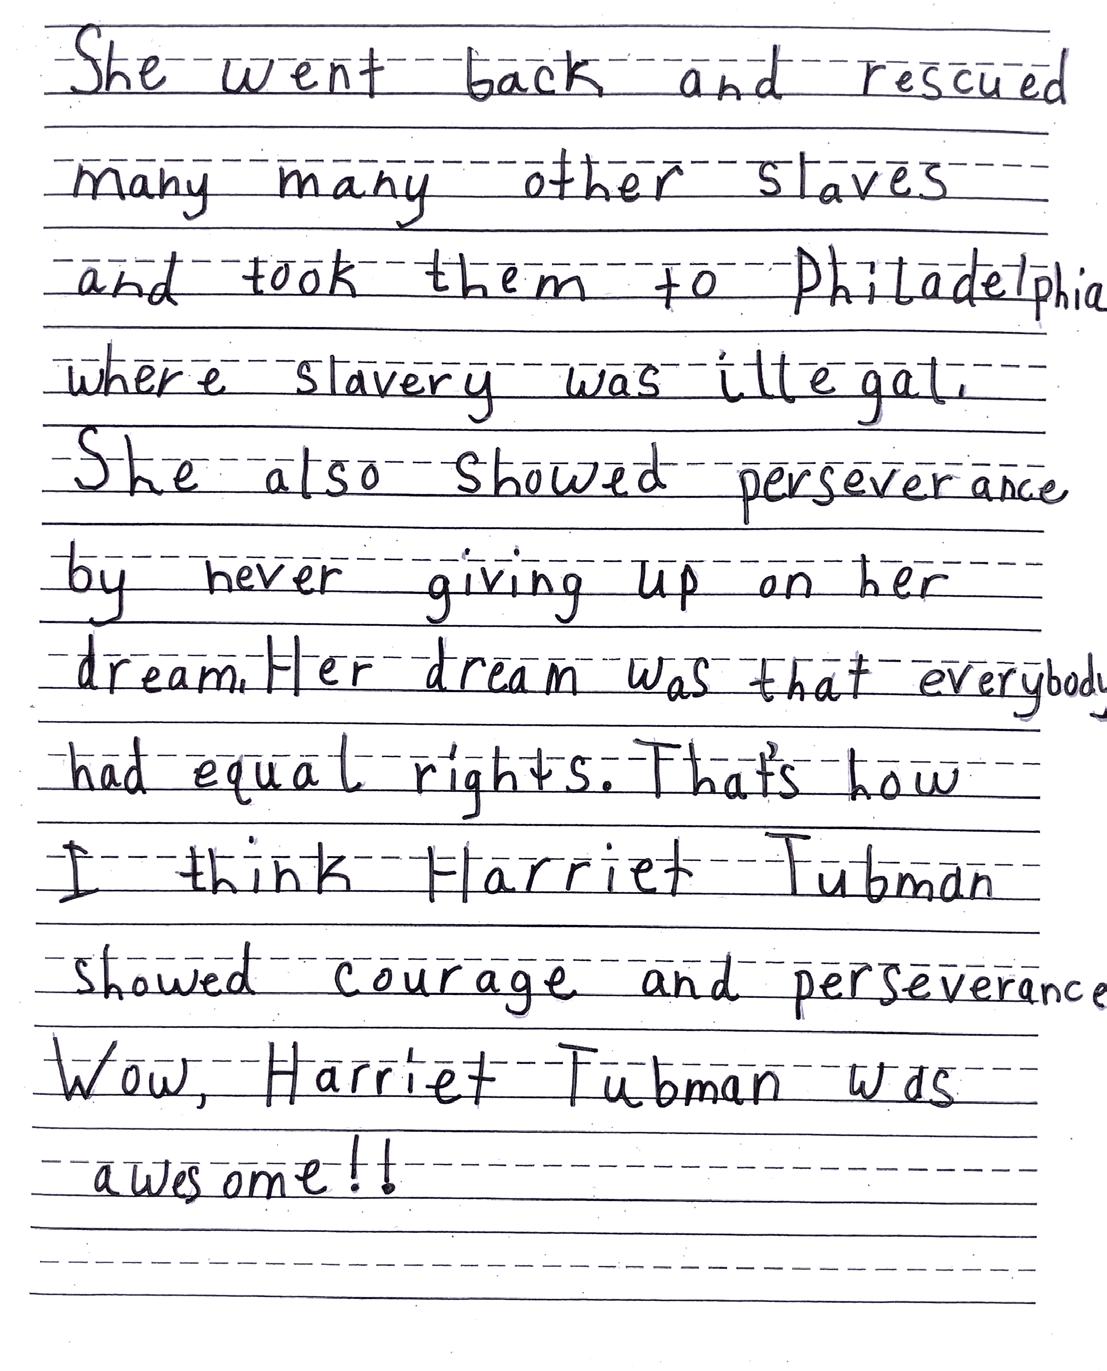 She went back and rescued
many many other slaves
and took them to Philadelphia
where slavery was illegal.
She also showed perseverance
by never giving up on her
dream. Her dream was that everybody
had equal rights. That's how
I think Harriet Tubman
showed courage and perseverance
Wow, Harriet Tubman was
awesome!!